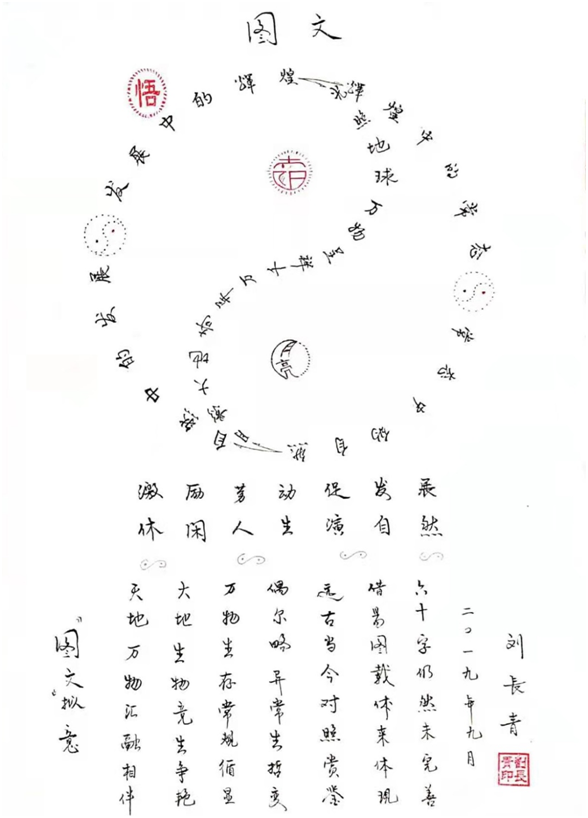 图文
悟
发展中的辉煌
辉煌中的常态
常态中的自然
自然中的发展
照地球万物
千万年
大地
月亮
激励劳动促发展
休闲人生演自然
“图文”拟意
天地万物汇融相伴
大地生物竞生争艳
万物生存常规循显
偶尔略异常生哲变
远古当今对照赏鉴
借易图载体来体现
六十字仍然未完善
二〇一九年九月
刘长青
劉長青印